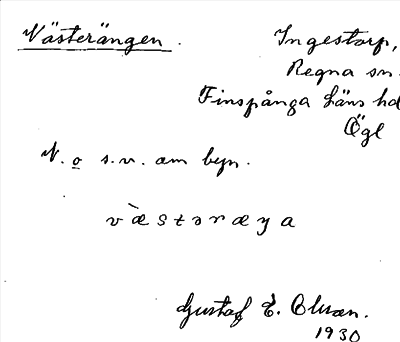 Västerängen.
Ingestorp,
Regna sn.
Finspånga läns hd
Ögl
N. o s.v. om byn.
Gustaf E. Olsson.
1930